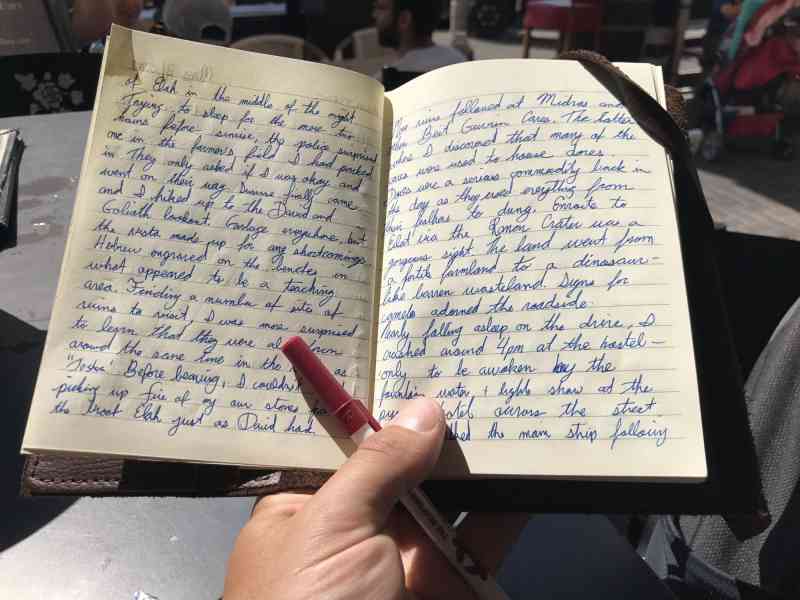 of Elah in the middle of the night
Trying to sleep for the more two
hours before sunrise, the police surprised
me in the farmer's field I had parked
in. They only asked if I was okay and
went on their way. Sunrise finally came
and I hiked up to the David and
Goliath lookout. Garbage everywhere, but
the vista made up for any shortcomings.
Hebrew engraved on the benches in
what appeared to be a teaching
area. Finding a number of sets of
ruins to visit, I was more surprised
to learn that they were al from
around the same time in the as
Before leaving, I couldn't
picking up five of my our stones
the brook Elah just as David had.
ruins followed at Midras and
Beit Guvrin Caves. The latter
where I discovered that many of the
caves were used to house doves.
Doves were a serious commodity back in
the day as they used everything from
their feathers to dung. Enroute to
Eilat via the Ramon Crater was a
gorgeous sight. The land went from
a fertile farmland to a dinosaur-
like barren wasteland. Signs for
camels adorned the roadside.
Nearly falling asleep on the drive, I
crashed around 4pm at the hostel -
only to be awoken by the
fountain water, + lights show at the
across the street.
the main strip following